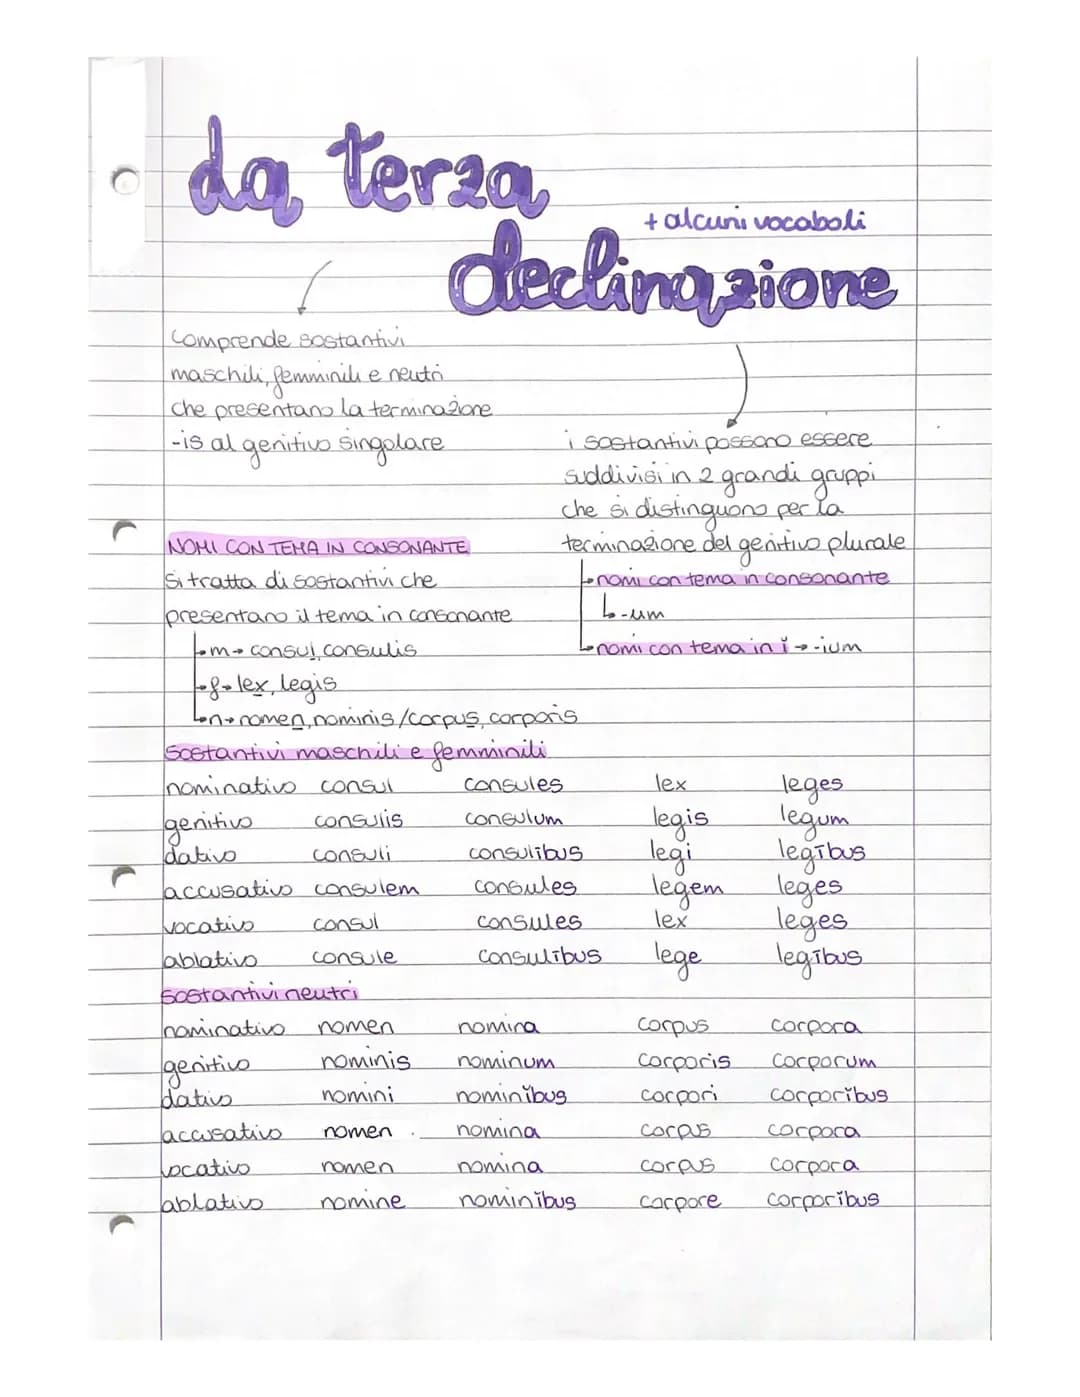 La terza
+ alcuni vocaboli
declinazione
Comprende sostantivi
maschili, femminili e neutri
che presentano la terminazione
-is al genitivo singolare
i sostantivi possono essere
suddivisi in 2 grandi gruppi
che si distinguono per la
terminazione del genitivo plurale
→nomi con tema in consonante
↳-um
→nomi con tema in i → -ium
NOMI CON TEMA IN CONSONANTE
Si tratta di sostantivi che
presentano il tema in consonante
→m→ consul, consulis
→f→ lex, legis
→n→ nomen, nominis/corpus, corporis
Sostantivi maschili e femminili
nominativo consul consules lex leges
genitivo consulis consulum legis legum
dativo consuli consulibus legi legĭbus
accusativo consulem consules legem leges
vocativo consul consules lex leges
ablativo consule consulĭbus lege legĭbus
Sostantivi neutri
nominativo nomen nomina corpus corpora
genitivo nominis nominum corporis corporum
dativo nomini nominĭbus corpori corporĭbus
accusativo nomen nomina corpus corpora
vocativo nomen nomina corpus corpora
ablativo nomine nominĭbus corpore corporĭbus